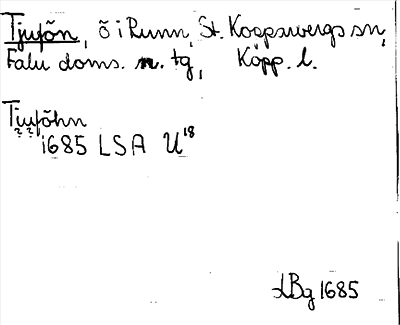 Tjufön, ö i Runn, St. Kopparbergs sn,
Falu doms. n. tg, Kopp. l.
Tiuföhn
? ?
1685 LSA U18
LBg 1685